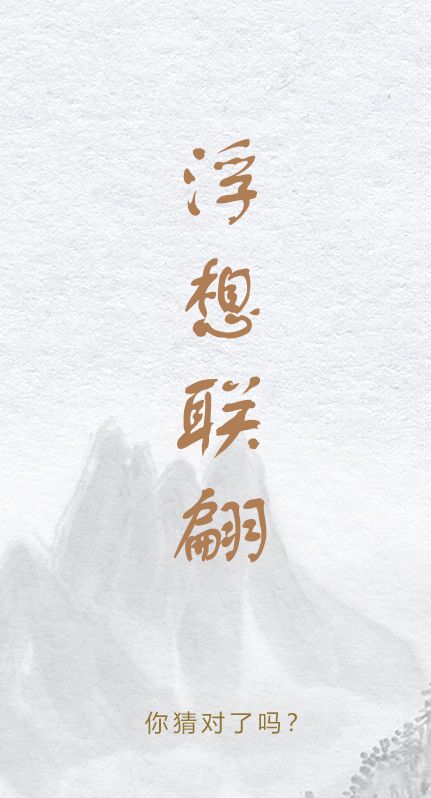 浮想联翩
你猜对了吗？